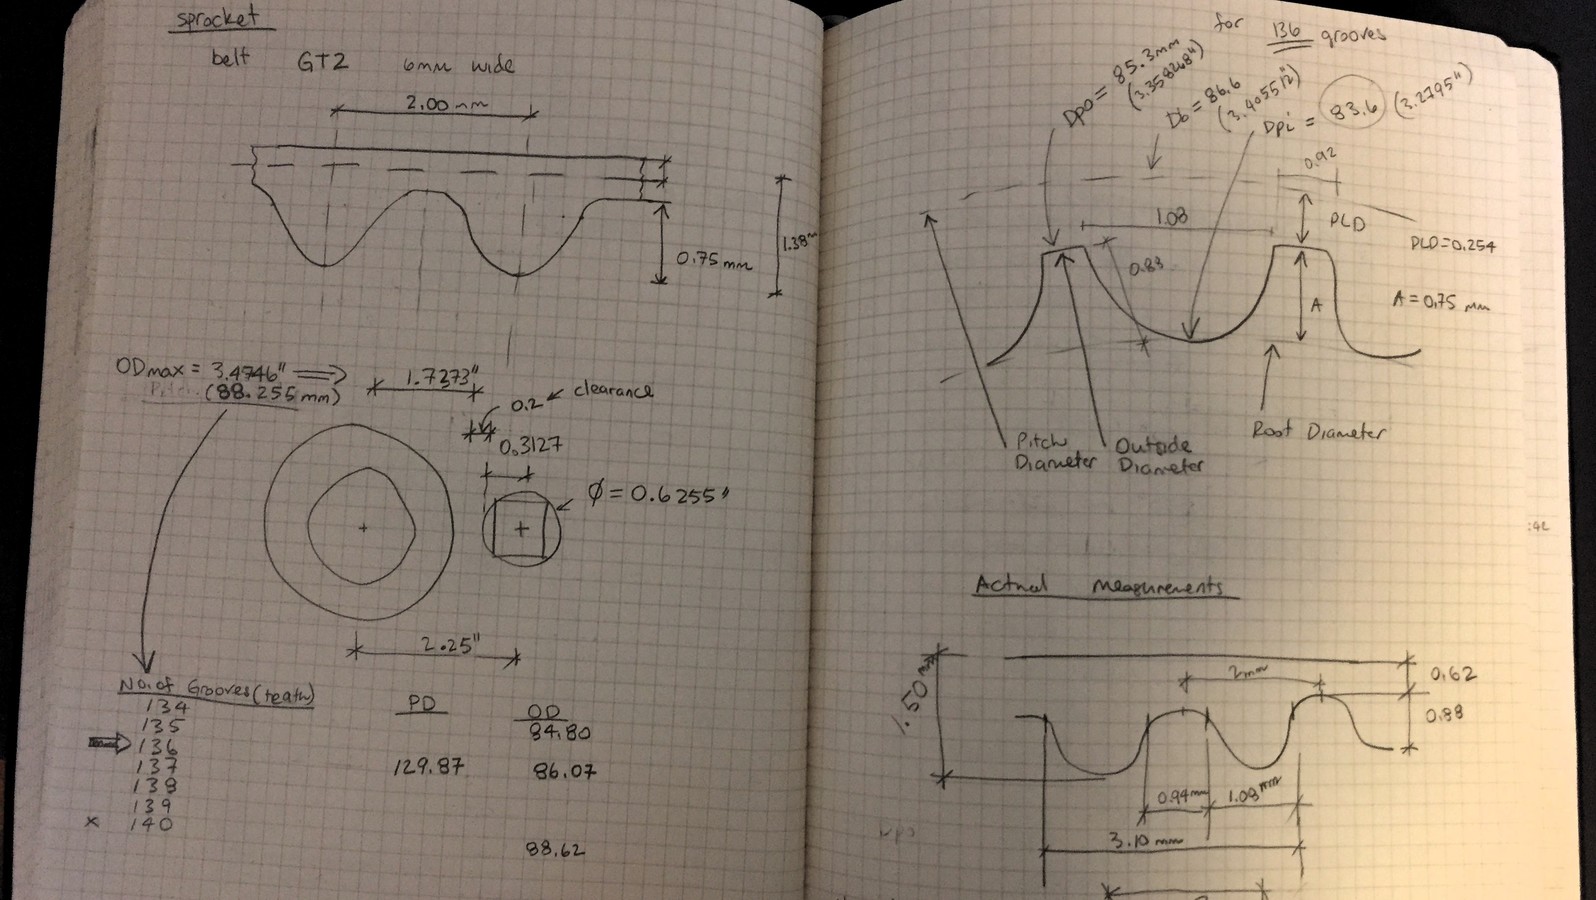 sprocket
belt GT2 6mm wide
2.00 mm
0.75 mm
1.38
ODmax = 3.4746" ⟹
(88.255 mm)
1.7373"
0.2 clearance
0.3127
Ø = 0.6255"
2.25"
No. of Grooves (teath) PD OD
134
135 84.80
⇒ 136
137 129.87 86.07
138
139
x 140
88.62
for 136 grooves
Dpo = 85.3mm
(3.358268")
Db = 86.6
(3.405512")
Dpi = 83.6 (3.2795")
0.92
1.08
PLD
PLD=0.254
0.83
A
A = 0.75 mm
Pitch
Diameter
Outside
Diameter
Root Diameter
:42
Actual measurements
2mm
0.62
0.88
1.50 mm
0.94mm
1.08mm
3.10 mm